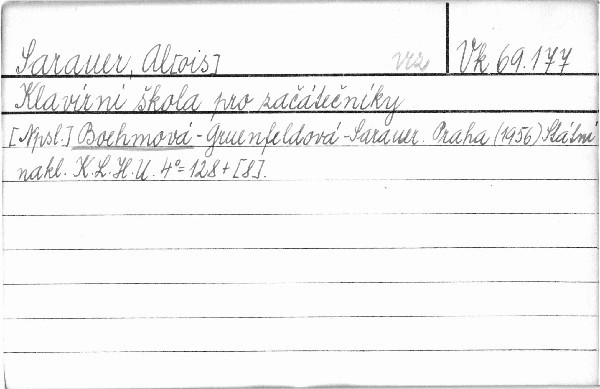 Sarauer, Al[ois] Vk 69.177
Klavírní škola pro začátečníky
[Npsl.] Boehmová - Gruenfeldová - Sarauer. Praha (1956) Státní
nakl. K.L.H.U. 4° = 128 + [8].